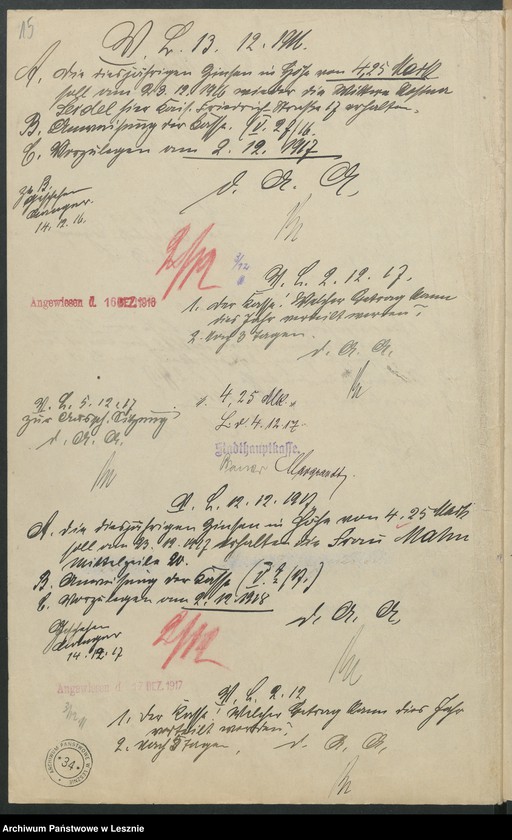 15
V. L. 13. 12. 1916.
A. Die diesjährigen Zinsen in Höhe von 4,25 Mark
soll am 23. 12. 1916 wieder die Witwe
Seidel hier Kais. Friedrich Straße 17 erhalten.
B. Anweisung der Kasse. (V. 27/16.
C. Vorzulegen am 2. 12. 1917
D. A. A.
zu B.
Geschehen
14. 12. 16.
2/12
Angewiesen d. 16 DEZ. 1916
V. L. 2. 12. 17.
1. Der Kasse! Welcher Betrag kann
dies Jahr verteilt werden?
2. Nach 3 Tagen.
D. A. A.
V. L. 5. 12. 17
zur Aussch. Sitzung
D. A. A.
4,25 Mk.
L. d. 4. 12. 17.
Stadthauptkasse.
V. L. 12. 12. 1917
A. Die diesjährigen Zinsen in Höhe von 4,25 Mark
soll am 23. 12. 1917 erhalten die Frau Mahn
Mittelzeile 20.
B. Anweisung der Kasse
C. Vorzulegen am 2. 12. 1918
D. A. A.
Geschehen
14. 12. 17
2/12
Angewiesen d. 17 DEZ. 1917
V. L. 2. 12
1. Der Kasse! Welcher Betrag kann dies Jahr
verteilt werden?
2. Nach 3 Tagen,
D. A. A.
ARCHIWUM PAŃSTWOWE W LESZNIE
34
Archiwum Państwowe w Lesznie